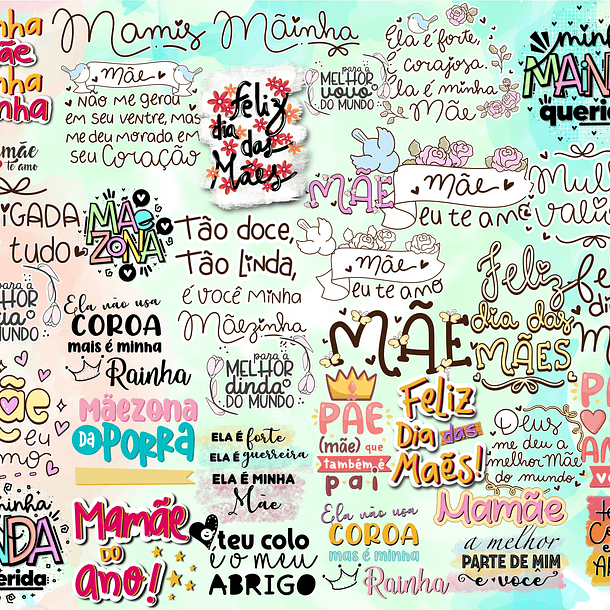 inha
Mãe
inha
inha
Mamis
Mãinha
Mãe
Não me gerou
em seu ventre, mas
me deu morada em
seu Coração
Feliz
dia das
Mães
para o
MELHOR
vovô
DO MUNDO
Ela é forte,
corajosa.
Ela é minha
Mãe
minha
querida
te amo
IGADA
tudo
MÃE
ZONA
Tão doce,
Tão Linda,
é você minha
Mãezinha
MÃE
Mãe
eu te amo
Mãe
eu te amo
para a
DO MUNDO
Ela não usa
COROA
mais é minha
Rainha
para a
MELHOR
dinda
DO MUNDO
MÃE
Feliz
dia das
MÃES
eu
Mãezona
da
porra
ELA É forte
ELA É guerreira
ELA É MINHA
Mãe
PAE
(mãe) que
também é
pai
Feliz
Dia das
Maẽs!
Deus
me deu a
melhor Mãe
do mundo
minha
Mamãe
do
ano!
teu colo
é o meu
ABRIGO
Ela não usa
COROA
mas é minha
Rainha
Mamãe
a melhor
PARTE DE MIM
é você